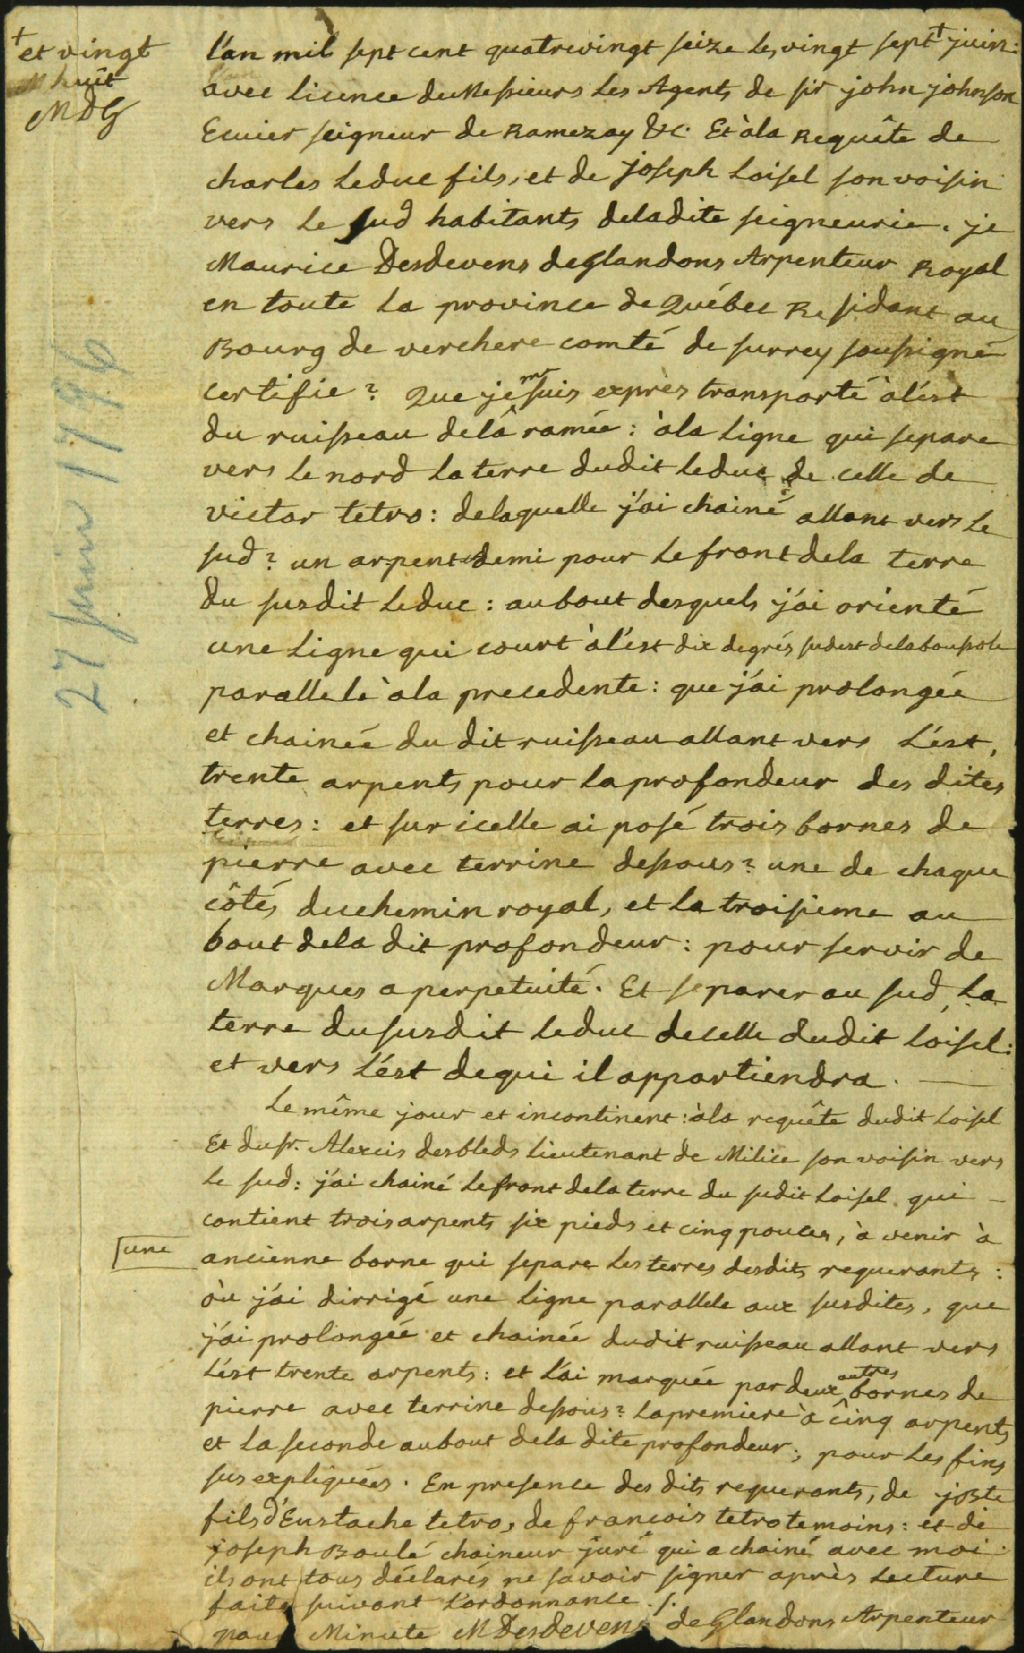 + et vingt
huit
MDG
27 juin 1796
l'an mil sept cent quatrevingt seize les vingt sept + juin:
avec licence de Messieurs les Agents de sir john johnson
Ecuier seigneur de Ramezay &c. Et à la Requête de
charles Leduc fils, et de joseph Loisel son voisin
vers le sud habitants de la dite seigneurie. je
Maurice Desdevens deglandons Arpenteur Royal
en toute la province de Québec Residant au
Bourg de verchere comté de surrey soussigné
certifie? Que je me suis exprès transporté à l'ést
du ruisseau de lâ ramée: à la ligne qui separe
vers le nord la terre dudit Leduc de celle de
victor tetro: de laquelle j'ai chainé allant vers le
sud? un arpent & demi pour le front de la terre
du susdit Leduc: au bout desquels j'ai orienté
une ligne qui court à l'ést dix degrés sudest de la boussole
parallele à la precedente: que j'ai prolongée
et chainée du dit ruisseau allant vers L'ést,
trente arpents pour la profondeur des dites
terres: et sur icelle ai posé trois bornes de
pierre avec terrine dessous? une de chaque
côtés du chemin royal, et la troisieme au
bout de la dit profondeur: pour servir de
Marques a perpetuité. Et separer au sud la
terre du susdit Leduc de celle dudit Loisel:
et vers L'ést de qui il appartiendra.
Le même jour et incontinent: à la requête dudit Loisel
Et du sr. Alexis desbleds Lieutenant de Milice son voisin vers
le sud: j'ai chainé le front de la terre du sudit Loisel qui
contient trois arpents six pieds et cinq pouces, à venir à
une
ancienne borne qui separe les terres desdits requerants:
où j'ai dirrigé une ligne parallele aux susdites, que
j'ai prolongée et chainée dudit ruisseau allant vers
L'ést trente arpents: et l'ai marquée par deux autres bornes de
pierre avec terrine dessous? la premiere à cinq arpents
et la seconde au bout de la dite profondeur; pour les fins
sus expliquées. En presence des dits requerants, de jBste
fils d'Eustache tetro, de francois tetro temoins: et de
joseph Boulé chaineur juré qui a chainé avec moi.
ils ont tous déclarés ne savoir signer après lecture
faite suivant L'ordonnance./.
pour Minute MDesdevens de Glandons Arpenteur